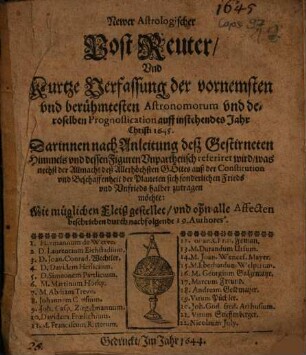 1645
Newer Astrologischer
Post Reuter/
Und
Kurtze Verfassung der vornemsten
vnd berühmtesten Astronomorum vnd de-
roselben Prognostication auff instehendes Jahr
Christi 1645.
Darinnen nach Anleitung deß Gestirneten
Himmels vnd dessen Figuren Vnpartheisch referiret wird/was
nechst der Allmacht deß Allerhöchsten GOttes auß der Constitution
vnd Beschaffenheit der Planeten sich sonderlichen Frieds
vnd Vnfrieds halber zutragen
möchte:
Mit müglichen Fleiß gestellet/vnd ohn alle Affecten
beschrieben durch nachfolgende
1. Hermannum de Werve.
2. D. Laurentium Eichstadium.
3. D. Joan. Conrad.
4. D. David. Herlicium.
5. D. Simonem Partlicium.
6. M. Martinum
7. M. Abdiam Trew.
8. Johannem
9. Joh. Casp.
10. Davidem
11. d. Franciscum
13. M. Durandum
14. M. Joan. Wenzel. Mayer.
15. M. Eberhardum
16. M. Georgium
17. Marcum Freund.
18. Andream Goldmayer.
19. Vitum
20. Joh. God. fred.
21. Vitum
22. Nicolaum
Gedruckt/Im Jahr 1644.